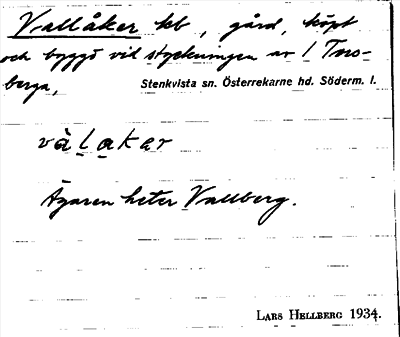 Vallåker hb, gård, köpt
och byggd vid styckningen av 1 Toro-
berga,
Stenkvista sn. Österrekarne hd. Söderm. l.
và l a k e r
Ägaren heter Vallberg.
LARS HELLBERG 1934.